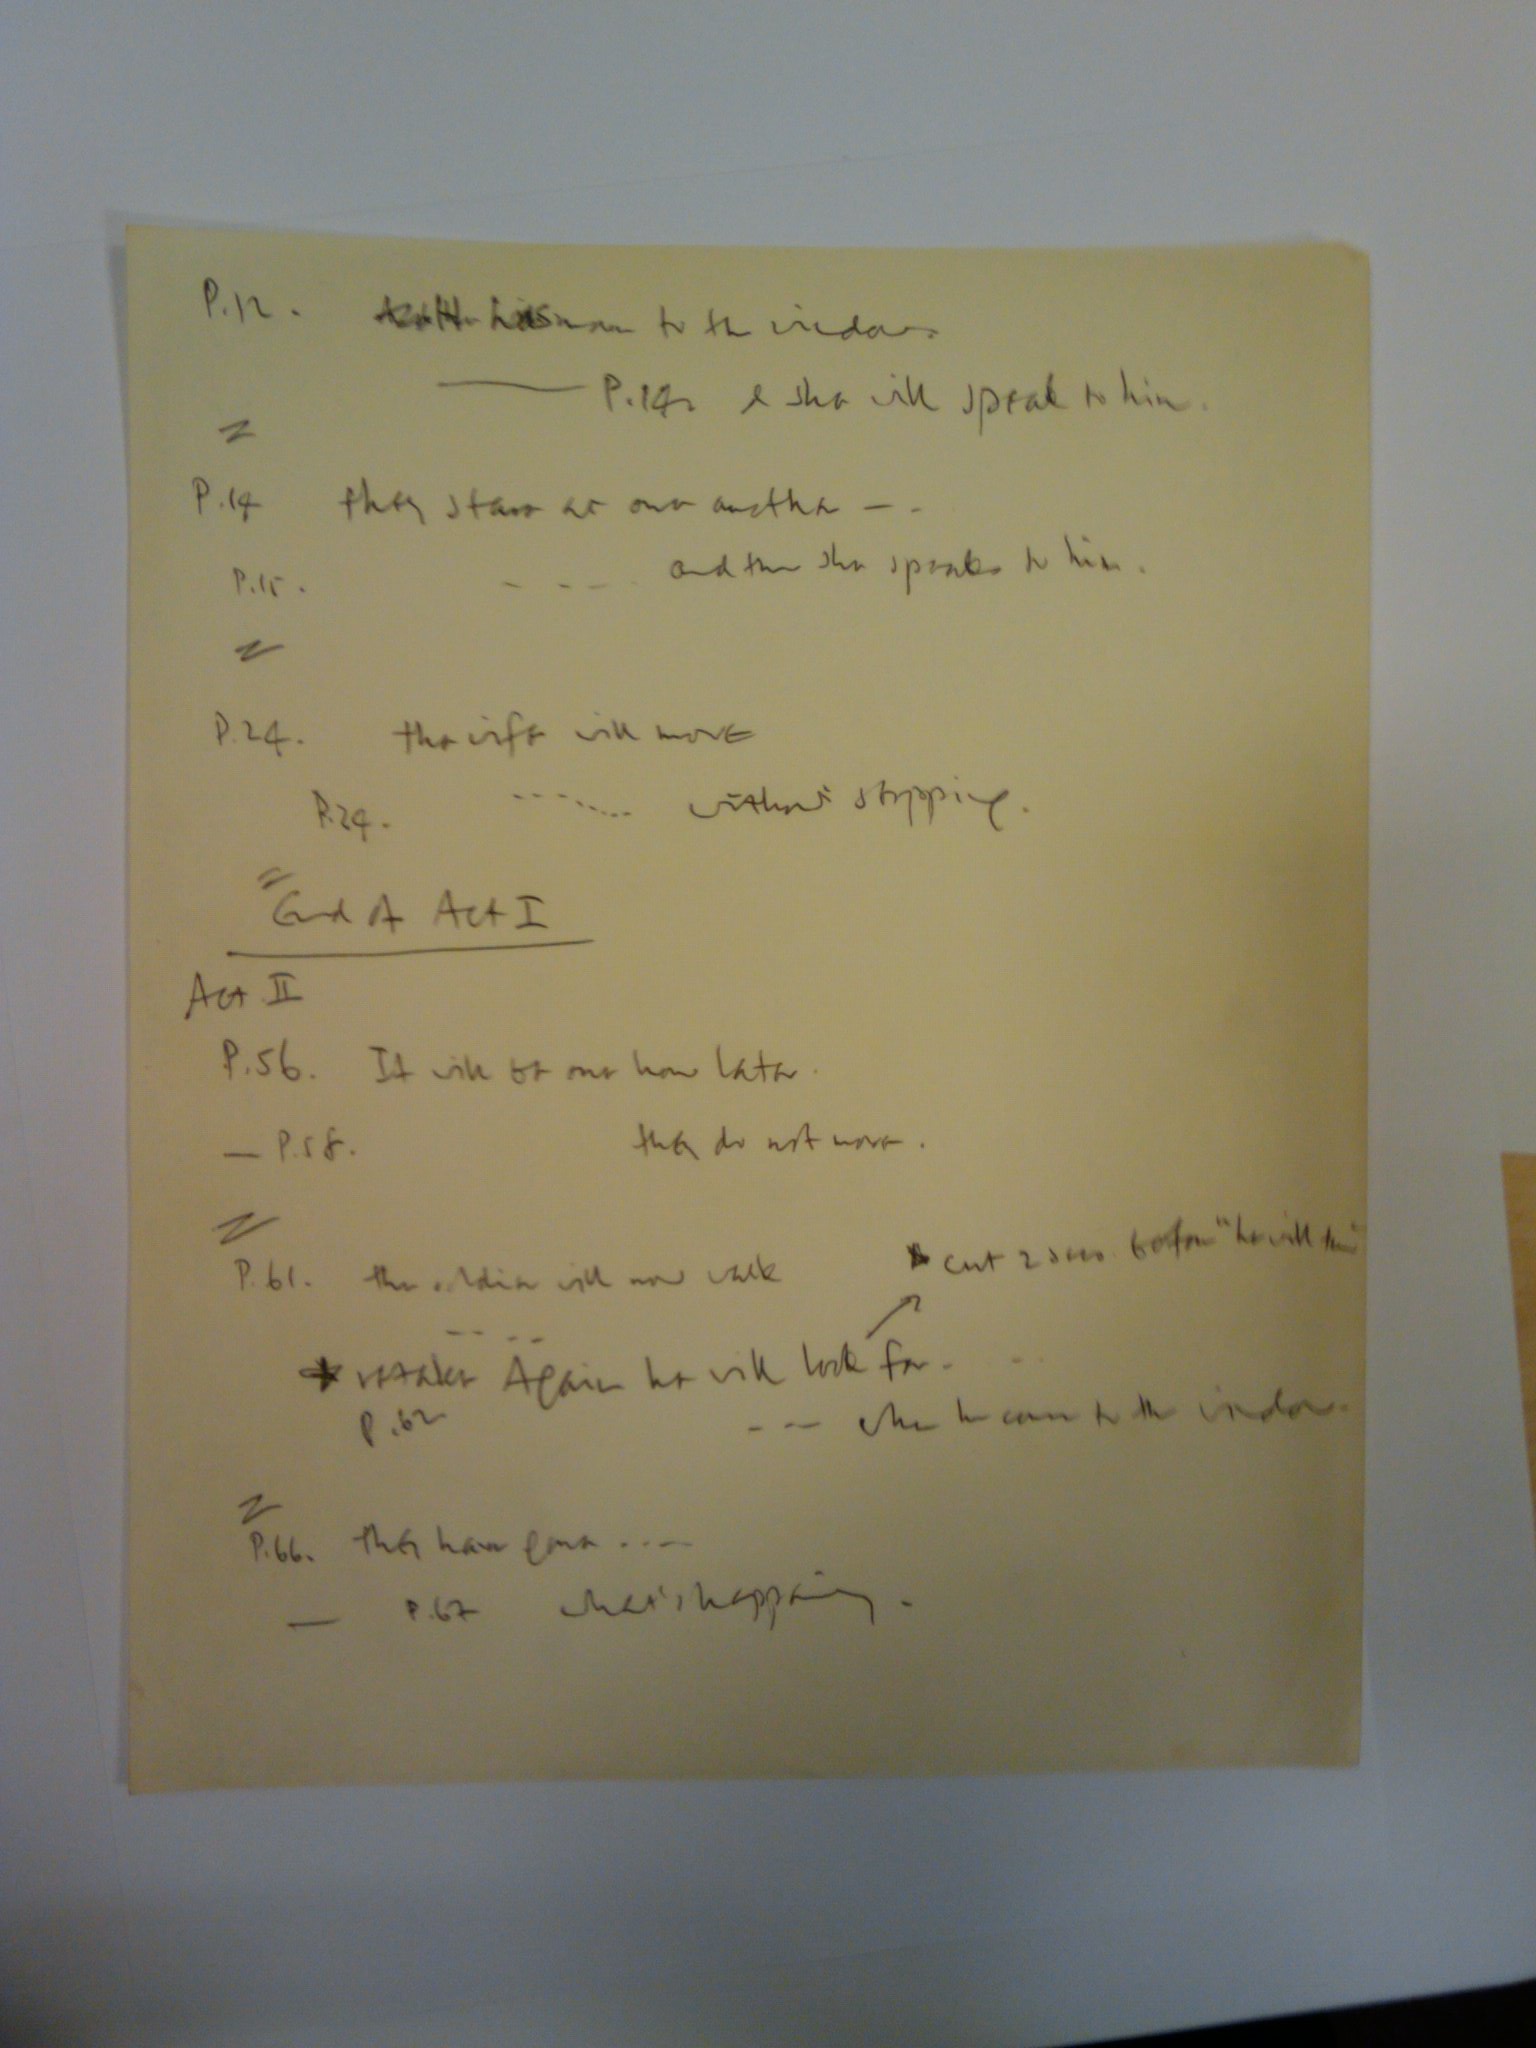 P.12. man to the window.
P.14. & she will speak to him.
P.14 they stare at one another - -
P.15. - - - and then she speaks to him.
P.24. the wife will move
P.24. ------- without stopping.
End of Act I
Act II
P.56. It will be one hour later.
— P.58. they do not move.
cut 2 secs. before "he will
P.61. the soldier will now walk
-- --
* retake Again he will look for.
P.62 --- when he comes to the window.
P.66. they have gone ....
— P.67 what's happening.